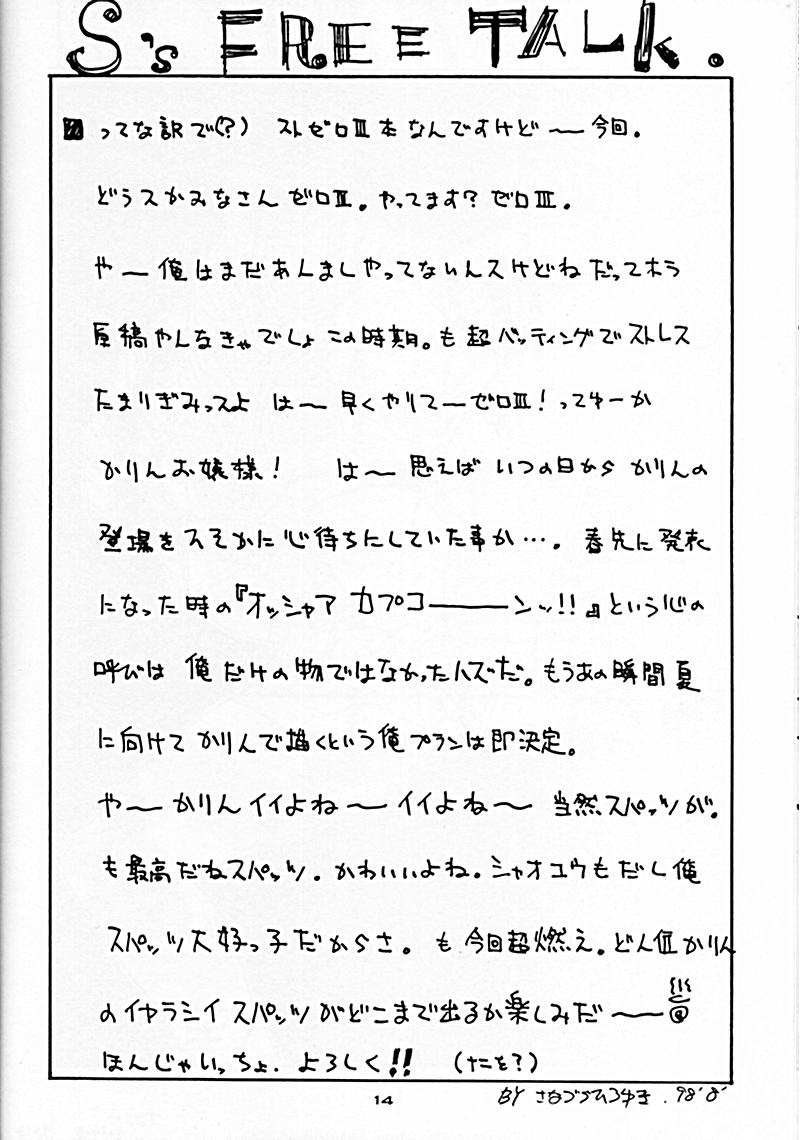 S's FREE TALK.
ってな訳で(?) ストゼロⅢ本なんですけど〜今回。
どうスかみなさんゼロⅢ。やってます?ゼロⅢ。
や〜俺はまだあんましやってないんスけどねだってホラ
原稿やんなきゃでしょこの時期。も超バッティングでストレス
たまりぎみっスよ は〜早くやりてーゼロⅢ!ってゆーか
かりんお嬢様! は〜思えばいつの日からかりんの
登場をひそかに心待ちにしていた事か…。春先に発表
になった時の『オッシャア カプコ―――ンッ!!』という心の
呼びは俺だけの物ではなかったハズだ。もうあの瞬間夏
に向けてかりんで描くという俺プランは即決定。
や〜かりんイイよね〜イイよね〜当然スパッツが。
も最高だねスパッツ。かわいいよね。シャオユウもだし俺
スパッツ大好っ子だからさ。も今回超燃え。どん位かりん
のイヤラシイスパッツがどこまで出るか楽しみだ〜
ほんじゃいっちょ.よろしく!!(ナニを?)
14
BY 98' 8'